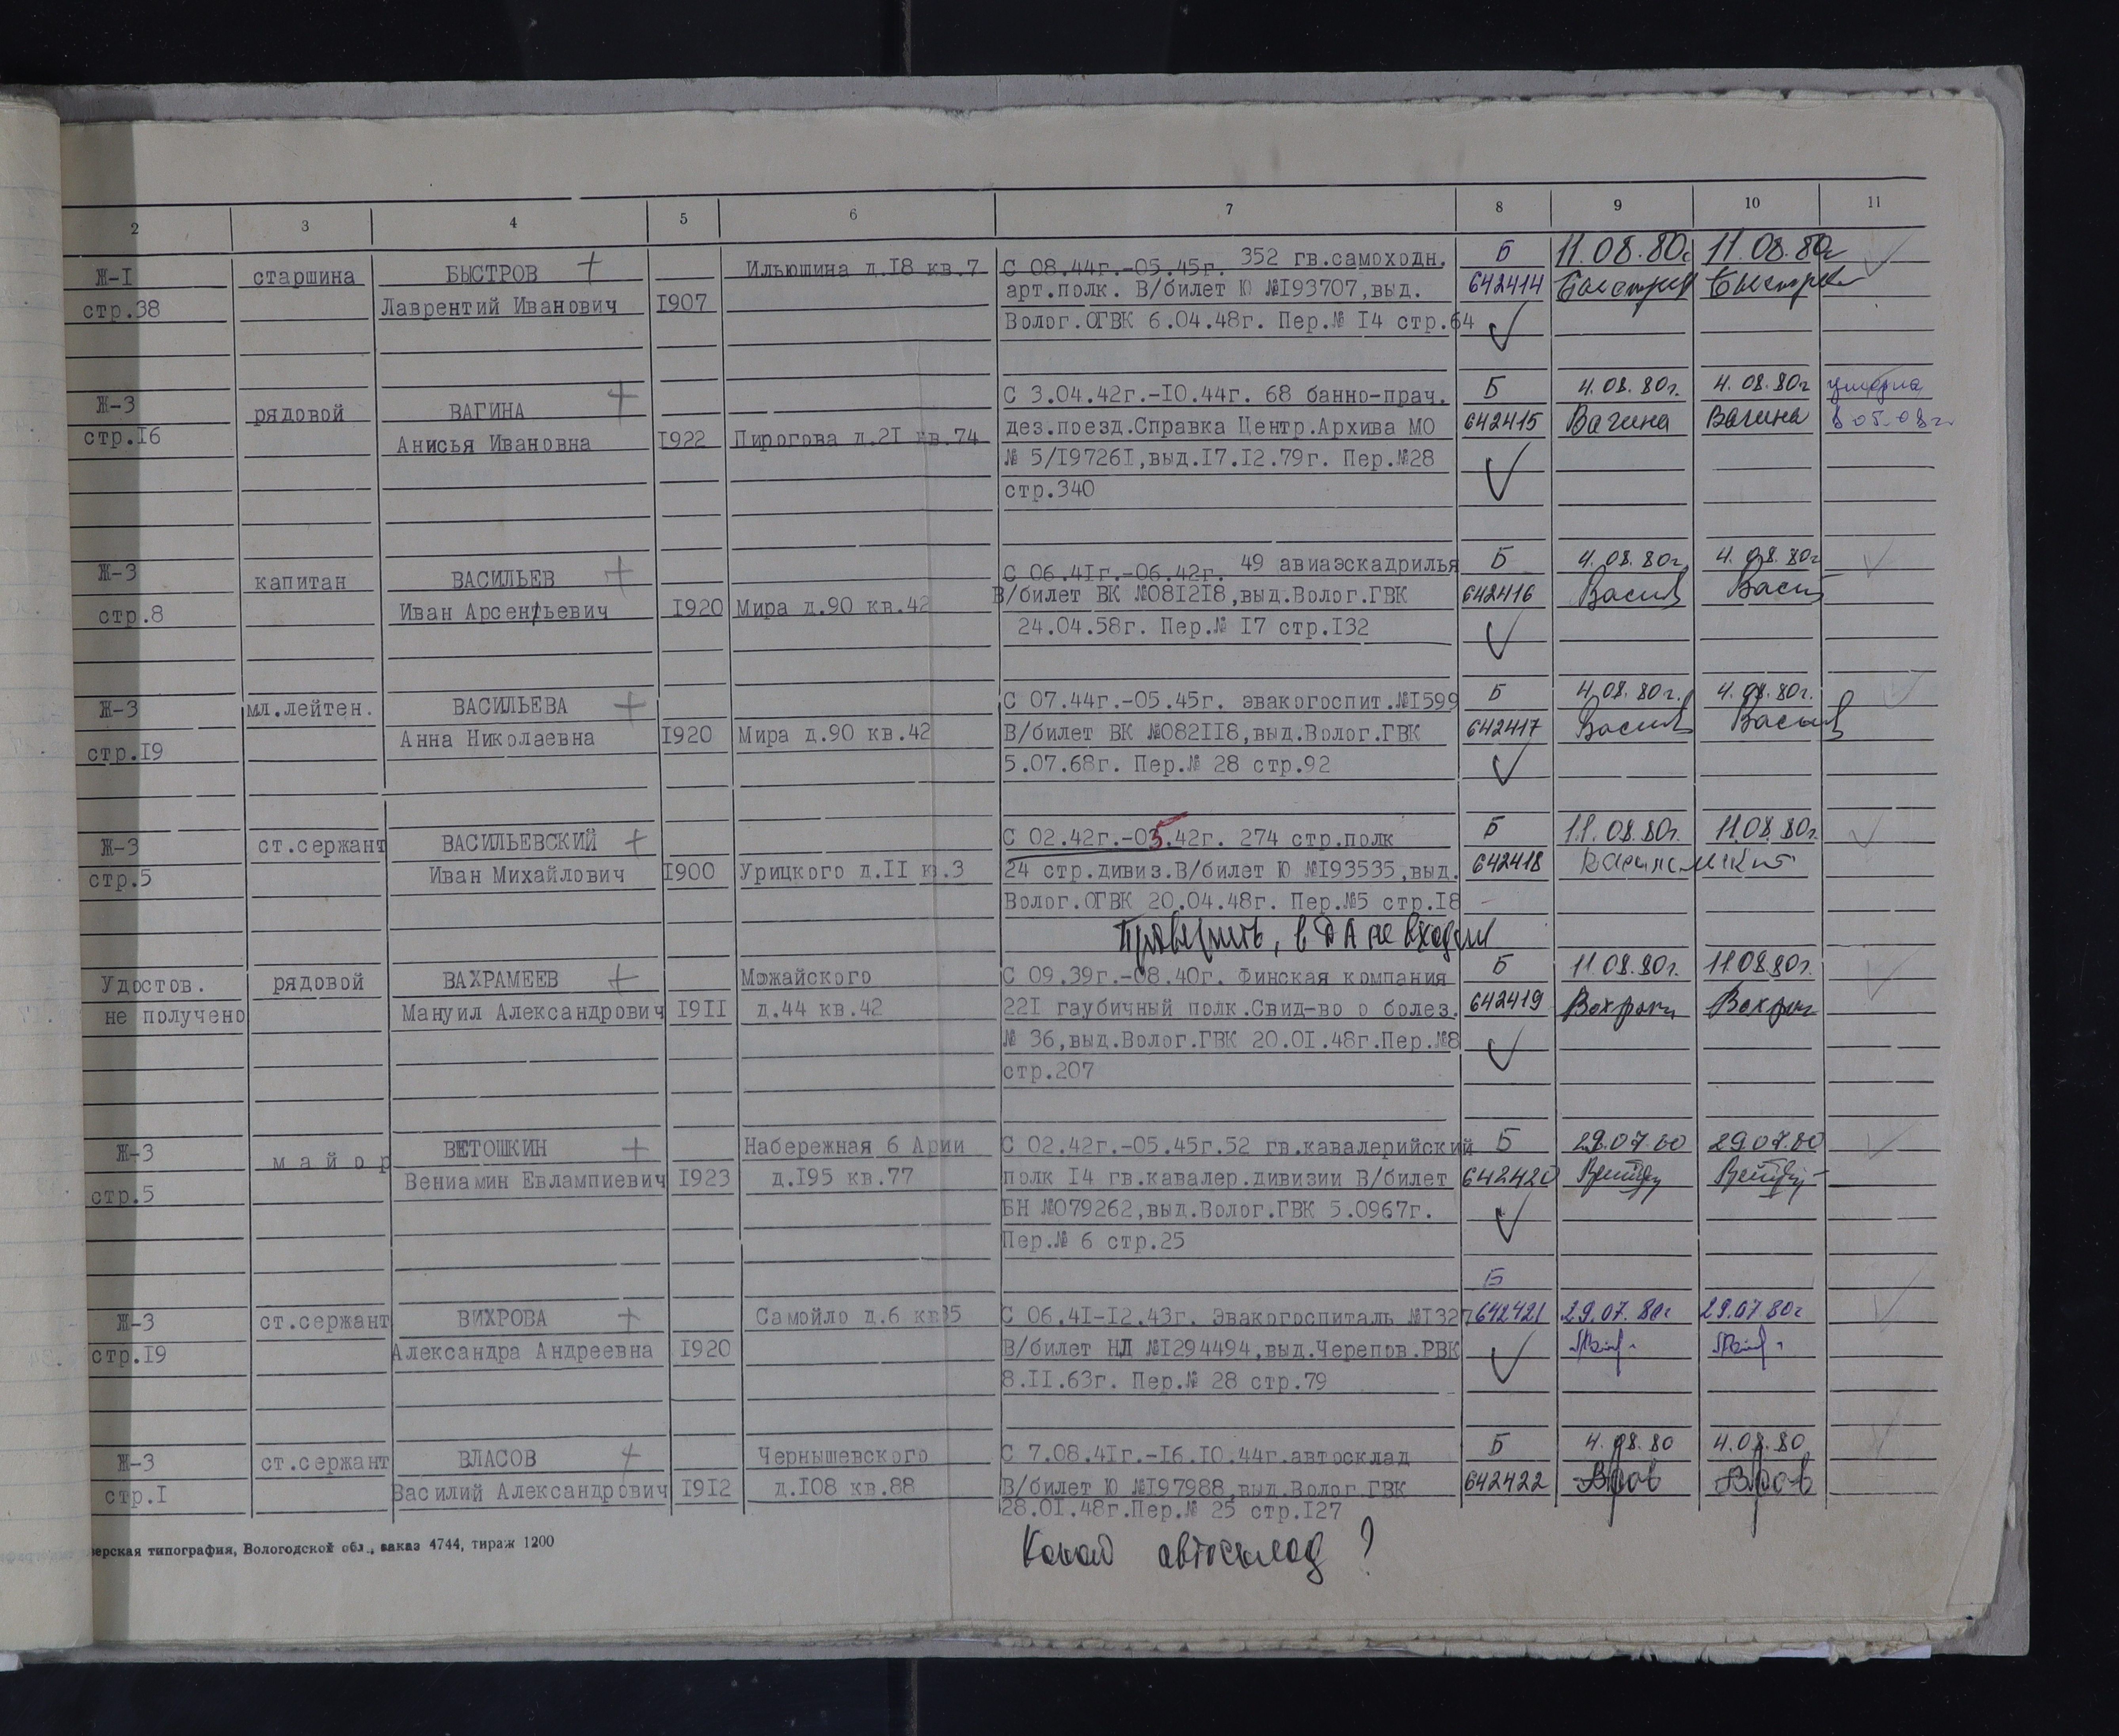 2 3 4 5 6 7 8 9 10 11
Ж-I старшина БЫСТРОВ + Ильюшина д.I8 кв.7 С 08.44г.-05.45г. 352 гв.самоходн. Б 11.08.80г 11.08.80г
стр.38 Лаврентий Иванович I907 арт.полк. В/билет Ю №I93707,выд. 642414 Быстров Быстров
Волог.ОГВК 6.04.48г. Пер.№ I4 стр.64
Ж-3 рядовой ВАГИНА + С 3.04.42г.-I0.44г. 68 банно-прач. Б 4.08.80г. 4.08.80г умерла
стр.I6 Анисья Ивановна I922 Пирогова д.2I кв.74 дез.поезд.Справка Центр.Архива МО 642415 Вагина Вагина в 05.08г
№ 5/I9726I,выд.I7.I2.79г. Пер.№28
стр.340
Ж-3 капитан ВАСИЛЬЕВ + С 06.4Iг.-06.42г. 49 авиаэскадрилья Б 4.08.80г 4.08.80г
стр.8 Иван Арсентьевич I920 Мира д.90 кв.42 В/билет ВК №08I2I8,выд.Волог.ГВК 642416
24.04.58г. Пер.№ I7 стр.I32
Ж-3 мл.лейтен. ВАСИЛЬЕВА + С 07.44г.-05.45г. эвакогоспит.№I599 Б 4.08.80г. 4.08.80г.
стр.I9 Анна Николаевна I920 Мира д.90 кв.42 В/билет ВК №082II8,выд.Волог.ГВК 642417
5.07.68г. Пер.№ 28 стр.92
Ж-3 ст.сержант ВАСИЛЬЕВСКИЙ + С 02.42г.-05.42г. 274 стр.полк Б 11.08.80г. 11.08.80г.
стр.5 Иван Михайлович I900 Урицкого д.II кв.3 24 стр.дивиз.В/билет Ю №I93535,выд. 642418
Волог.ОГВК 20.04.48г. Пер.№5 стр.I8
Проверить, в ДА не входил
Удостов. рядовой ВАХРАМЕЕВ + Можайского С 09.39г.-08.40г. Финская компания Б 11.08.80г. 11.08.80г.
не получено Мануил Александрович I9II д.44 кв.42 22I гаубичный полк.Свид-во о болез. 642419
№ 36,выд.Волог.ГВК 20.0I.48г.Пер.№8
стр.207
Ж-3 майор ВЕТОШКИН + Набережная 6 Арии С 02.42г.-05.45г.52 гв.кавалерийский Б 29.07.80 29.07.80
стр.5 Вениамин Евлампиевич I923 д.I95 кв.77 полк I4 гв.кавалер.дивизии В/билет 642420
БН №079262,выд.Волог.ГВК 5.0967г.
Пер.№ 6 стр.25
Б
Ж-3 ст.сержант ВИХРОВА + Самойло д.6 кв35 С 06.4I-I2.43г. Эвакогоспиталь №I327 642421 29.07.80г 29.07.80г
стр.I9 Александра Андреевна I920 В/билет НЛ №I294494,выд.Черепов.РВК
8.II.63г. Пер.№ 28 стр.79
Ж-3 ст.сержант ВЛАСОВ + Чернышевского С 7.08.4Iг.-I6.I0.44г.автосклад Б 4.08.80 4.08.80
стр.I Василий Александрович I9I2 д.I08 кв.88 В/билет Ю №I97988,выд.Волог.ГВК 642422
28.0I.48г.Пер.№ 25 стр.I27
ерская типография, Вологодской обл., заказ 4744, тираж 1200
Какой автосклад ?